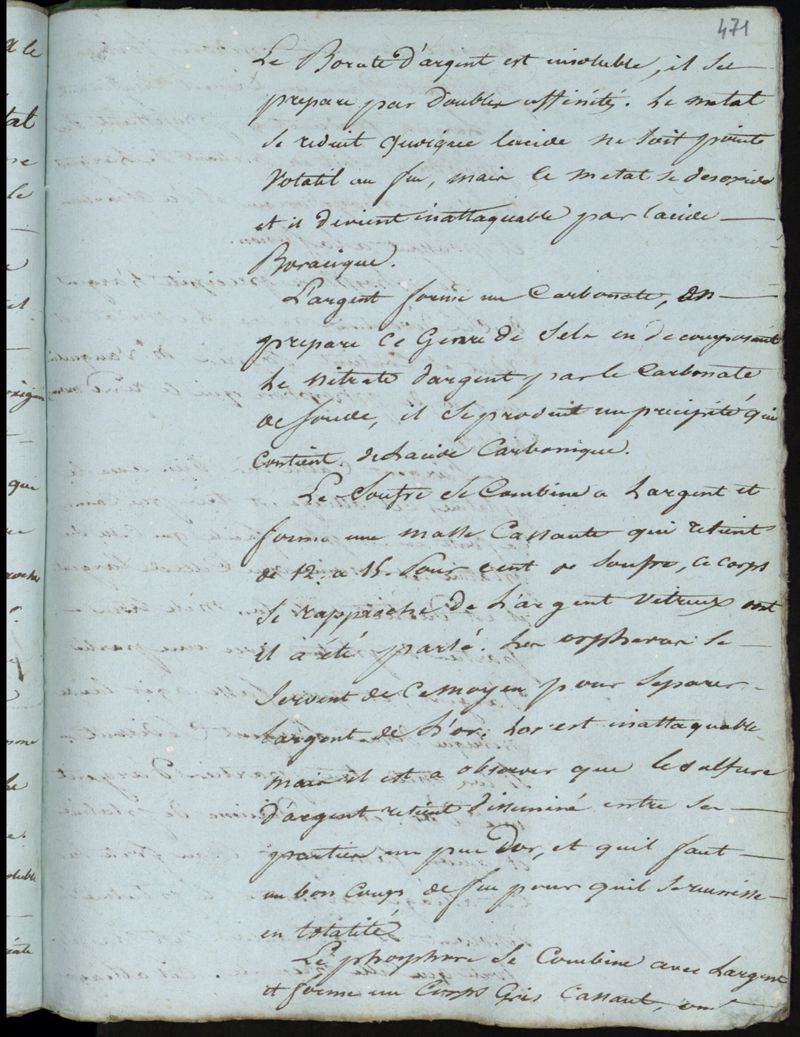 471
Le Borate d'argent est insoluble, il se
prepare par doubles affinités. Le metal
se reduit quoique lacide ne soit point
volatil au feu, mais le metal se desoxide
et il devient inattaquable par lacide
Boracique.
L'argent forme un Carbonate, on
prepare ce Genre de Sels en decomposant
Le nitrate dargent par le Carbonate
de soude, il se produit un precipité qui
contient de Lacide Carbonique.
Le Soufre se Combine a Largent et
forme une masse Cassante qui retient
de 12. a 15. Pour cent de Soufre, ce corps
se rapproche de L'argent vitreux ont
il a été parlé. Les orphevres se
servent de Ce moyen pour separer
Largent de L'or; Lor est inattaquable
mais il est a observer que le sulfure
d'argent retient disseminé entre ses
parties un peu Dor, et quil faut
un bon coups de feu pour quil se reunisse
en totalité
Le phosphore se Combine avec Largent
et forme un Corps Gris Cassant, on
a le
tal
le
que
oluble